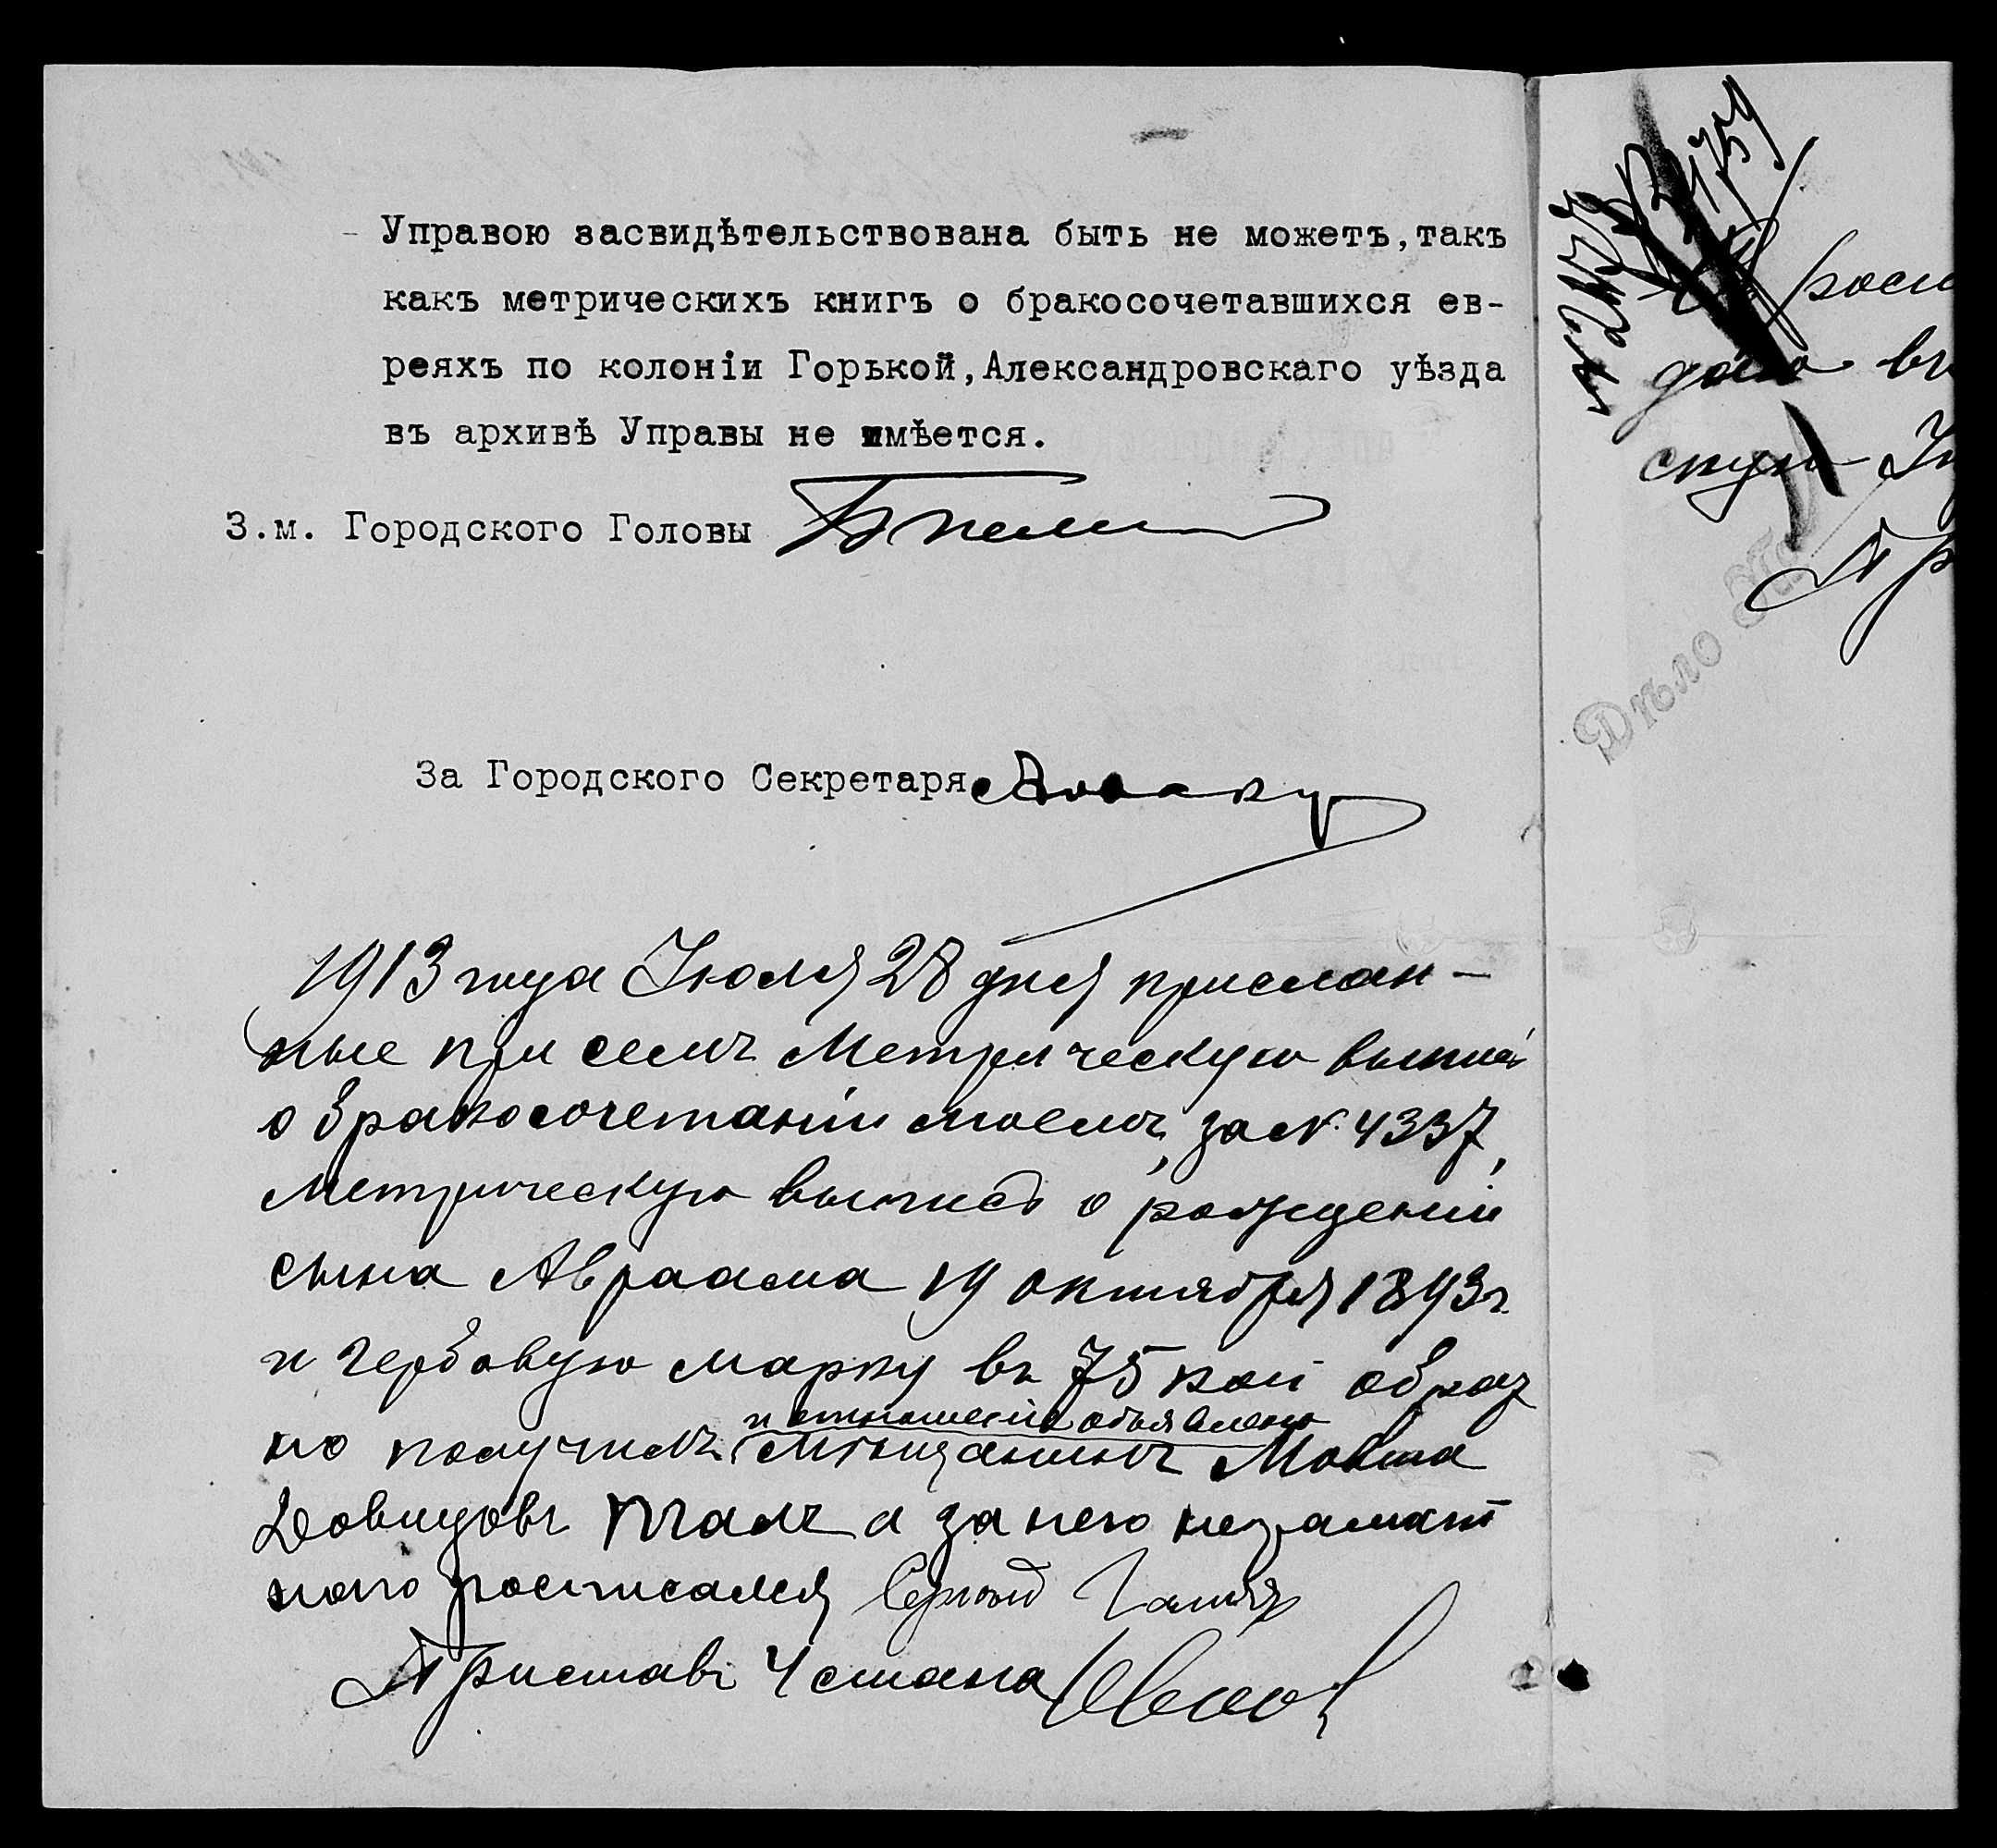 Управою засвидѣтельствована быть не можетъ, такъ
какъ метрическихъ книгъ о бракосочетавшихся ев-
реяхъ по колоніи Горькой, Александровскаго уѣзда
въ архивѣ Управы не имѣется.
З.м. Городского Головы
За Городского Секретаря
1913 года Іюля 28 дня прислан-
ные при семъ Метрическую выпись
о бракосочетаніи моемъ, за № 4337,
Метрическую выпись о рожденіи
сына Авраама 19 октября 1893 г
и гербовую марку въ 75 коп обрат
и отношеніе объявлено
но получилъ мѣщанинъ Мовша
Довидовъ а за него неграмот
ного росписался
Приставъ 4 стана
роси
дско въ
скую
Пр
Дѣло №